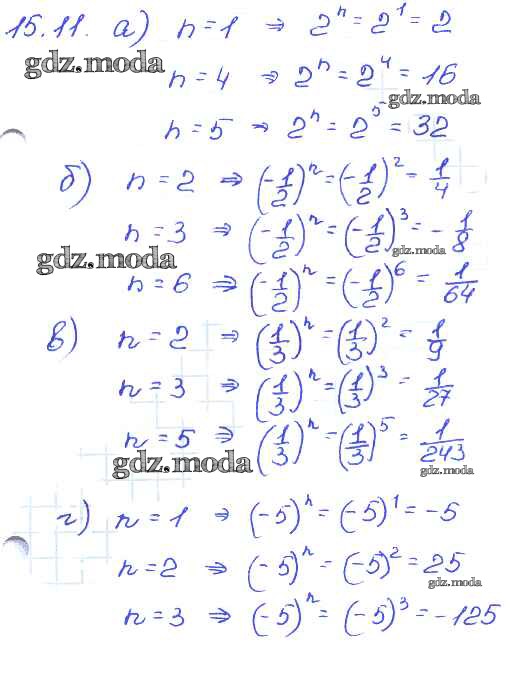 15.11. а) n=1 ⇒ 2ⁿ = 2¹ = 2
gdz.moda
n=4 ⇒ 2ⁿ = 2⁴ = 16
gdz.moda
n=5 ⇒ 2ⁿ = 2⁵ = 32
б) n=2 ⇒ (-1/2)ⁿ = (-1/2)² = 1/4
n=3 ⇒ (-1/2)ⁿ = (-1/2)³ = -1/8
gdz.moda
gdz.moda
n=6 ⇒ (-1/2)ⁿ = (-1/2)⁶ = 1/64
в) n=2 ⇒ (1/3)ⁿ = (1/3)² = 1/9
n=3 ⇒ (1/3)ⁿ = (1/3)³ = 1/27
n=5 ⇒ (1/3)ⁿ = (1/3)⁵ = 1/243
gdz.moda
gdz.moda
г) n=1 ⇒ (-5)ⁿ = (-5)¹ = -5
n=2 ⇒ (-5)ⁿ = (-5)² = 25
gdz.moda
n=3 ⇒ (-5)ⁿ = (-5)³ = -125